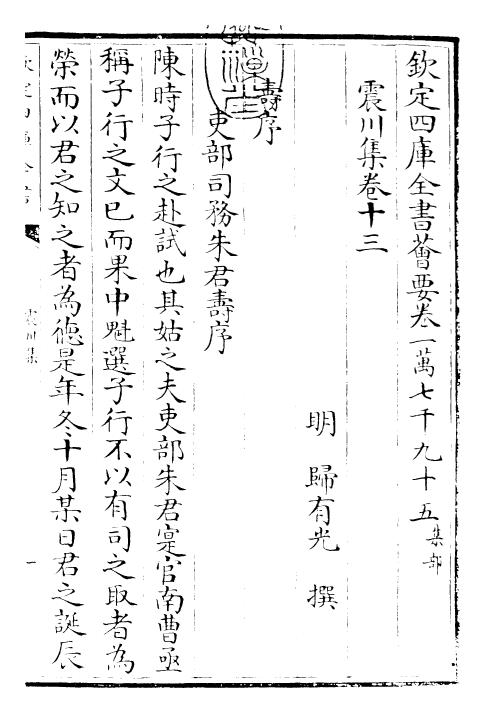 欽定四庫全書薈要卷一萬七千九十五集部
震川集卷十三
明歸有光撰
壽序
吏部司務朱君壽序
陳時子行之赴試也其姑之夫吏部朱君寔官南曹亟
稱子行之文已而果中魁選子行不以有司之取者為
榮而以君之知之者為德是年冬十月某日君之誕辰
震川集
一